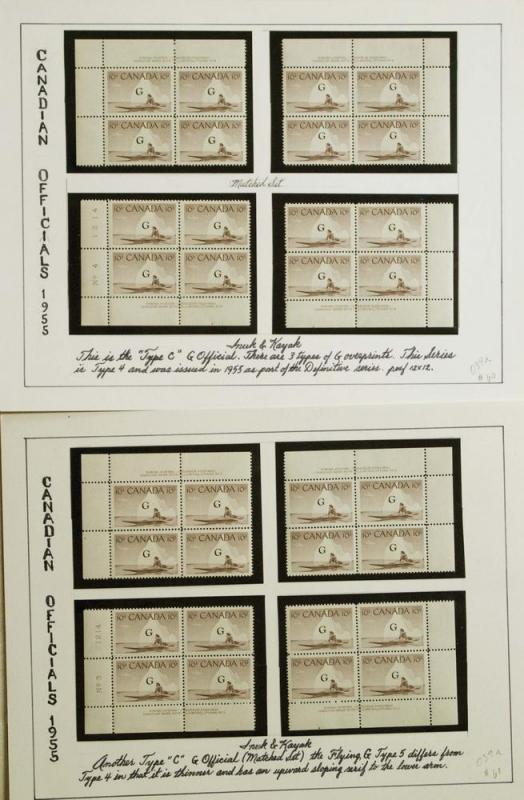 CANADIAN OFFICIALS 1955
10¢ CANADA 10¢
G
Matched Set
Nº 4 1214
10¢ CANADA 10¢
G
Inuk & Kayak
This is the "Type C" G Official. There are 3 types of G overprints. This Series
is Type 4 and was issued in 1955 as part of the Definitive series. perf 12x12.
CANADIAN OFFICIALS 1955
10¢ CANADA 10¢
G
Nº 3 1214
10¢ CANADA 10¢
G
Inuk & Kayak
Another Type "C" G Official (Matched Set) the Flying G Type 5 differs from
Type 4 in that it is thinner and has an upward sloping serif to the lower arm.